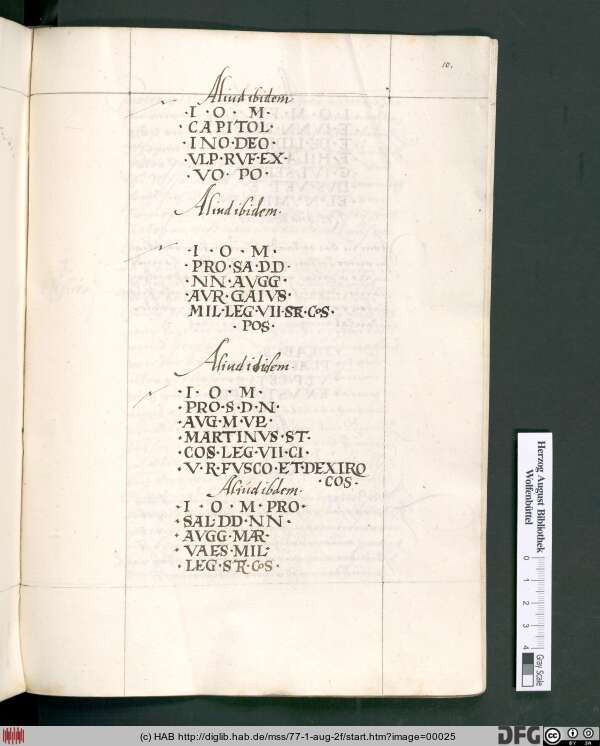 10.
Aliud ibidem
·I·O·M·
·CAPITOL·
·INO·DEO·
·VLP·RVF·EX·
·VO·PO·
Aliud ibidem·
·I·O·M·
·PRO·SA·D·D·
·NN·AVGG·
·AVR·GAIVS·
MIL·LEG·VII·STR·COS·
·POS·
Aliud ibidem·
·I·O·M·
·PRO·S·D·N·
·AVG·M·VP·
·MARTINVS·ST·
·COS·LEG·VII·CI·
·V·R·FVSCO·ET·DEXTRO
·COS·
Aliud ibdem·
·I·O·M·PRO·
·SAL·DD·NN·
·AVGG·MAR·
·VAES·MIL·
·LEG·STR·COS·
Herzog August Bibliothek
Wolfenbüttel
0 1 2 3 4
Gray Scale
(c) HAB http://diglib.hab.de/mss/77-1-aug-2f/start.htm?image=00025
DFG
cc BY SA